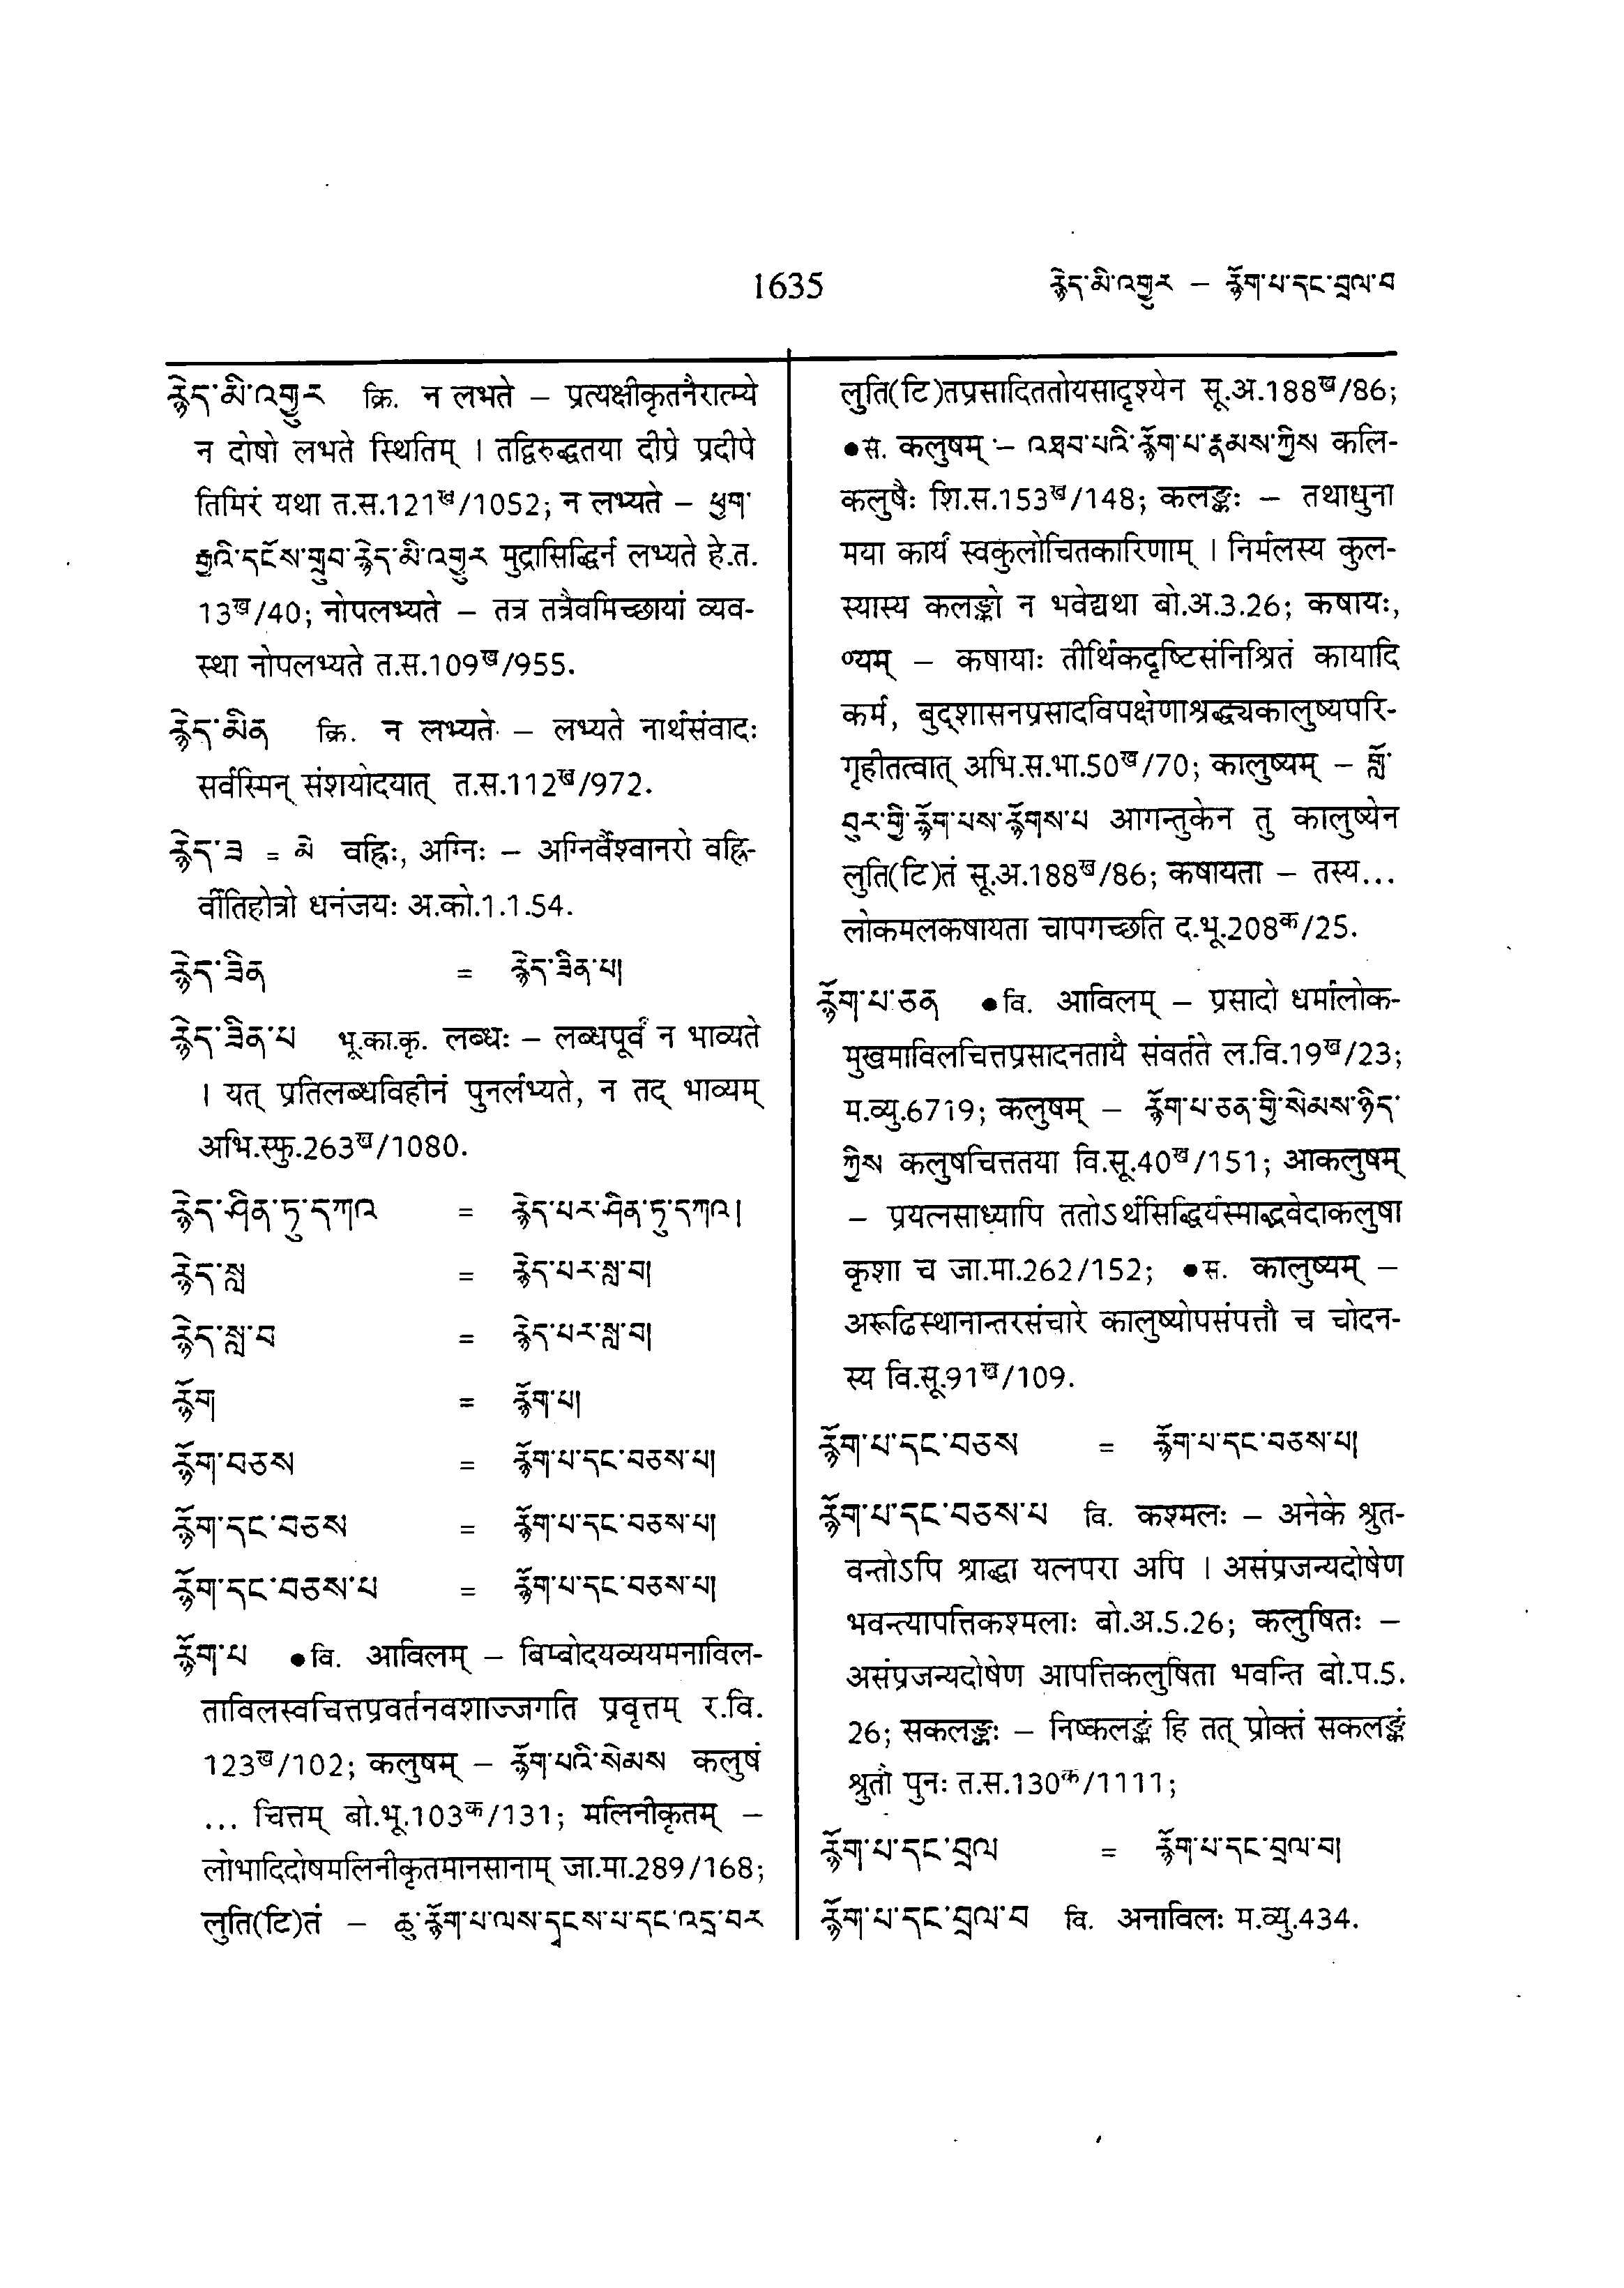 1635
རྙེད་མི་འགྱུར – རྙོག་པ་དང་བྲལ་བ
རྙེད་མི་འགྱུར क्रि. न लभते – प्रत्यक्षीकृतनैरात्म्ये
न दोषो लभते स्थितिम् । तद्विरुद्धतया दीप्रे प्रदीपे
तिमिरं यथा त.स.121ख/1052; न लभ्यते – ཕྱག་
རྒྱའི་དངོས་གྲུབ་རྙེད་མི་འགྱུར मुद्रासिद्धिर्न लभ्यते हे.त.
13ख/40; नोपलभ्यते – तत्र तत्रैवमिच्छायां व्यव-
स्था नोपलभ्यते त.स.109ख/955.
རྙེད་མིན क्रि. न लभ्यते – लभ्यते नार्थसंवादः
सर्वस्मिन् संशयोदयात् त.स.112ख/972.
རྙེད་ཟ = མེ वह्निः, अग्निः – अग्निर्वैश्वानरो वह्नि-
र्वीतिहोत्रो धनंजयः अ.को.1.1.54.
རྙེད་ཟིན = རྙེད་ཟིན་པ།
རྙེད་ཟིན་པ भू.का.कृ. लब्धः – लब्धपूर्वं न भाव्यते
। यत् प्रतिलब्धविहीनं पुनर्लभ्यते, न तद् भाव्यम्
अभि.स्फु.263ख/1080.
རྙེད་ཤིན་ཏུ་དཀའ = རྙེད་པར་ཤིན་ཏུ་དཀའ།
རྙེད་སླ = རྙེད་པར་སླ་བ།
རྙེད་སླ་བ = རྙེད་པར་སླ་བ།
རྙོག = རྙོག་པ།
རྙོག་བཅས = རྙོག་པ་དང་བཅས་པ།
རྙོག་དང་བཅས = རྙོག་པ་དང་བཅས་པ།
རྙོག་དང་བཅས་པ = རྙོག་པ་དང་བཅས་པ།
རྙོག་པ ●वि. आविलम् – बिम्बोदयव्ययमनाविल-
ताविलस्वचित्तप्रवर्तनवशाज्जगति प्रवृत्तम् र.वि.
123ख/102; कलुषम् – རྙོག་པའི་སེམས कलुषं
... चित्तम् बो.भू.103क/131; मलिनीकृतम् –
लोभादिदोषमलिनीकृतमानसानाम् जा.मा.289/168;
लुति(टि)तं – ཆུ་རྙོག་པ་ལས་དྭངས་པ་དང་འདྲ་བར
लुति(टि)तप्रसादिततोयसादृश्येन सू.अ.188ख/86;
●स. कलुषम् – འཐབ་པའི་རྙོག་པ་རྣམས་ཀྱིས कलि-
कलुषैः शि.स.153ख/148; कलङ्कः – तथाधुना
मया कार्यं स्वकुलोचितकारिणाम् । निर्मलस्य कुल-
स्यास्य कलङ्को न भवेद्यथा बो.अ.3.26; कषायः,
॰यम् – कषायाः तीर्थिकदृष्टिसंनिश्रितं कायादि
कर्म, बुद्शासनप्रसादविपक्षेणाश्रद्ध्यकालुष्यपरि-
गृहीतत्वात् अभि.स.भा.50ख/70; कालुष्यम् – གློ་
བུར་གྱི་རྙོག་པས་རྙོགས་པ आगन्तुकेन तु कालुष्येन
लुति(टि)तं सू.अ.188ख/86; कषायता – तस्य...
लोकमलकषायता चापगच्छति द.भू.208क/25.
རྙོག་པ་ཅན ●वि. आविलम् – प्रसादो धर्मालोक-
मुखमाविलचित्तप्रसादनतायै संवर्तते ल.वि.19ख/23;
म.व्यु.6719; कलुषम् – རྙོག་པ་ཅན་གྱི་སེམས་ཉིད་
ཀྱིས कलुषचित्ततया वि.सू.40ख/151; आकलुषम्
– प्रयत्नसाध्यापि ततोऽर्थसिद्धिर्यस्माद्भवेदाकलुषा
कृशा च जा.मा.262/152; ●स. कालुष्यम् –
अरूढिस्थानान्तरसंचारे कालुष्योपसंपत्तौ च चोदन-
स्य वि.सू.91ख/109.
རྙོག་པ་དང་བཅས = རྙོག་པ་དང་བཅས་པ།
རྙོག་པ་དང་བཅས་པ वि. कश्मलः – अनेके श्रुत-
वन्तोऽपि श्राद्धा यत्नपरा अपि । असंप्रजन्यदोषेण
भवन्त्यापत्तिकश्मलाः बो.अ.5.26; कलुषितः –
असंप्रजन्यदोषेण आपत्तिकलुषिता भवन्ति बो.प.5.
26; सकलङ्कः – निष्कलङ्कं हि तत् प्रोक्तं सकलङ्कं
श्रुतौ पुनः त.स.130क/1111;
རྙོག་པ་དང་བྲལ = རྙོག་པ་དང་བྲལ་བ།
རྙོག་པ་དང་བྲལ་བ वि. अनाविलः म.व्यु.434.